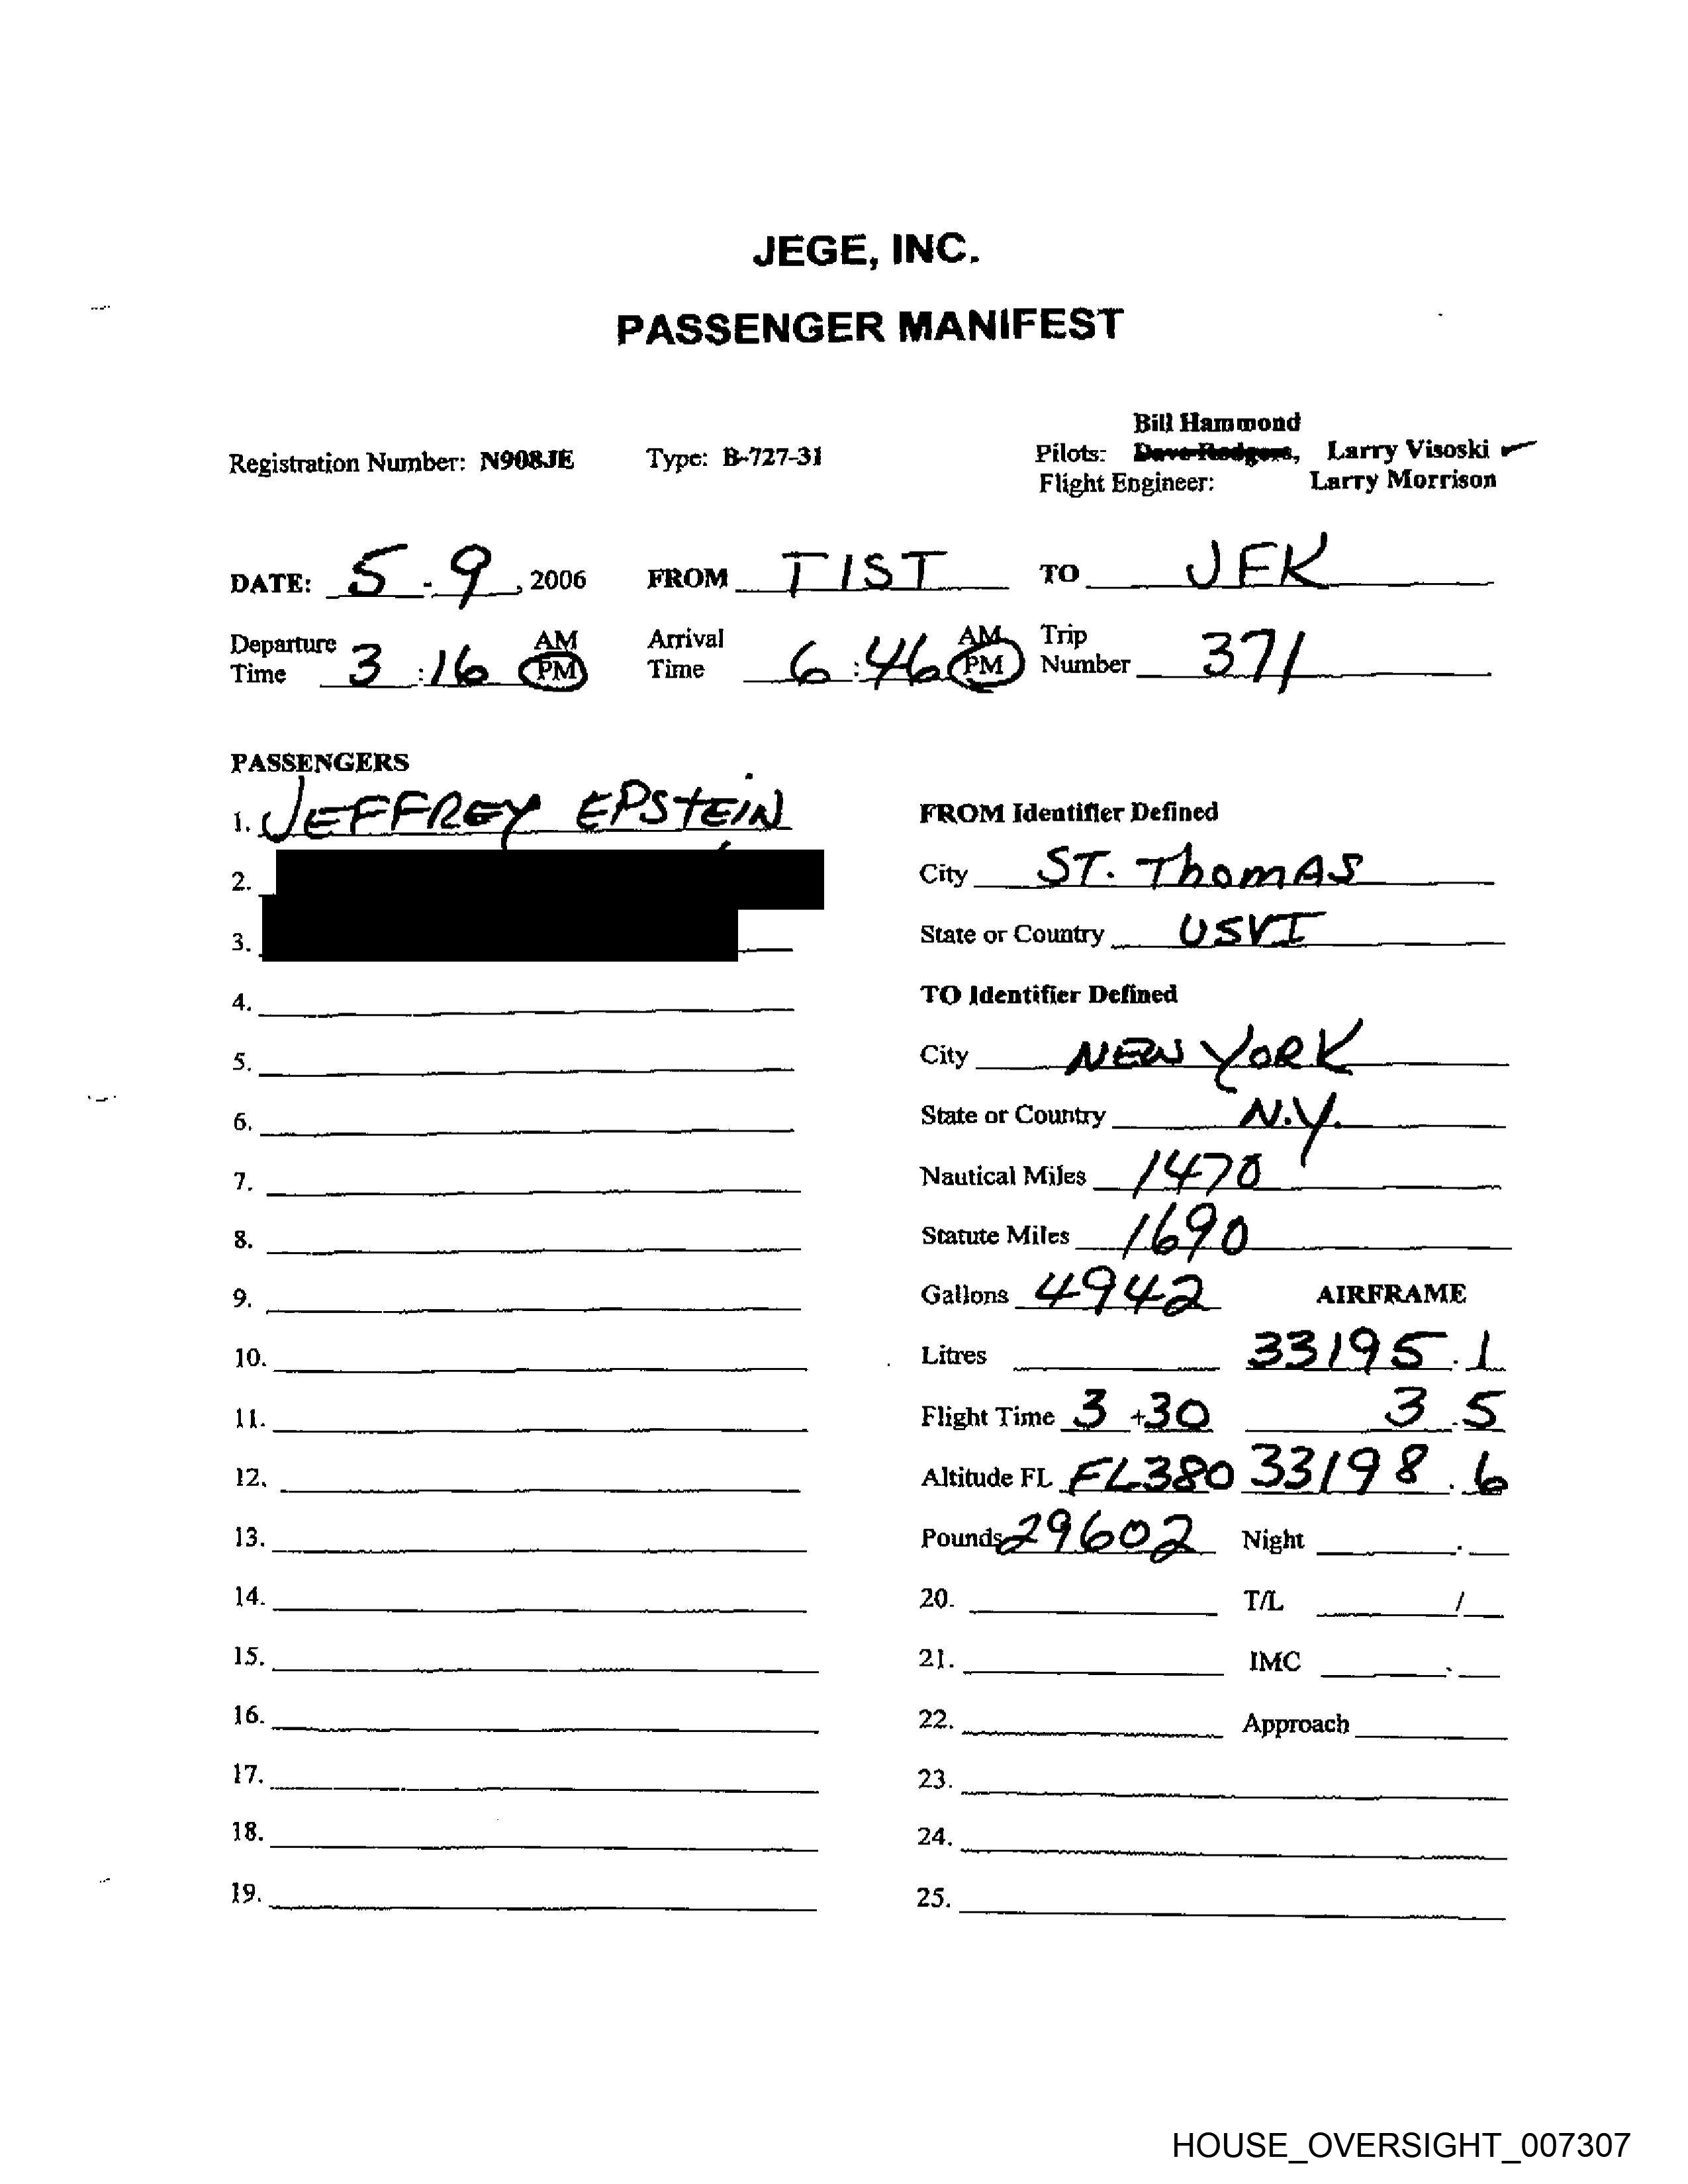 JEGE, INC.
PASSENGER MANIFEST
Bill Hammond
Registration Number: N908JE Type: B-727-31 Pilots: Dave Rodgers, Larry Visoski
Flight Engineer: Larry Morrison
DATE: 5 - 9, 2006 FROM TIST TO JFK
Departure Time 3:16 AM PM Arrival Time 6:46 AM PM Trip Number 371
PASSENGERS
1. JEFFREY EPSTEIN
2.
3.
4.
5.
6.
7.
8.
9.
10.
11.
12.
13.
14.
15.
16.
17.
18.
19.
FROM Identifier Defined
City ST. ThomAS
State or Country USVI
TO Identifier Defined
City NEW YORK
State or Country N.Y.
Nautical Miles 1470
Statute Miles 1690
Gallons 4942 AIRFRAME
Litres 33195.1
Flight Time 3+30 3.5
Altitude FL FL380 33198.6
Pounds 29602 Night .
20. T/L /
21. IMC .
22. Approach
23.
24.
25.
HOUSE_OVERSIGHT_007307